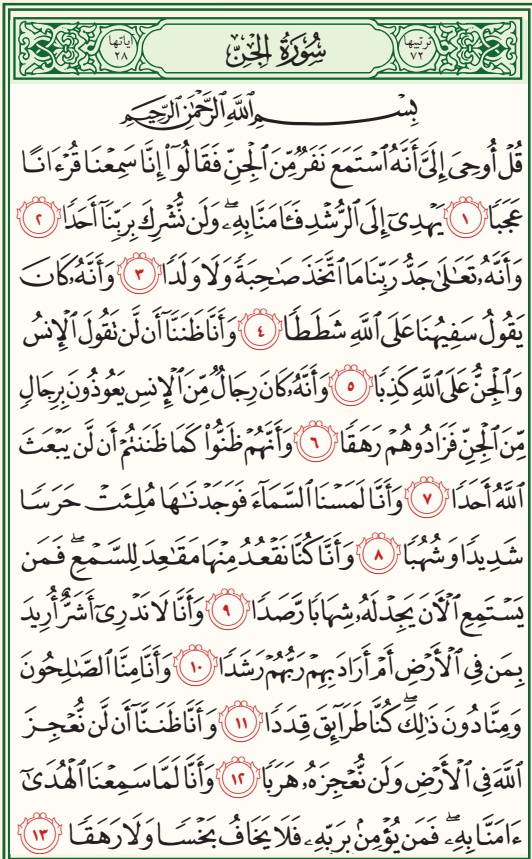 ترتيبها ٧٢ سُورَةُ الجِنِّ آياتها ٢٨
بِسْمِ اللَّهِ الرَّحْمَٰنِ الرَّحِيمِ
قُلْ أُوحِىَ إِلَىَّ أَنَّهُ ٱسْتَمَعَ نَفَرٌ مِّنَ ٱلْجِنِّ فَقَالُوٓا۟ إِنَّا سَمِعْنَا قُرْءَانًا
عَجَبًا ١ يَهْدِىٓ إِلَى ٱلرُّشْدِ فَـَٔامَنَّا بِهِۦ وَلَن نُّشْرِكَ بِرَبِّنَآ أَحَدًا ٢
وَأَنَّهُۥ تَعَٰلَىٰ جَدُّ رَبِّنَا مَا ٱتَّخَذَ صَٰحِبَةً وَلَا وَلَدًا ٣ وَأَنَّهُۥ كَانَ
يَقُولُ سَفِيهُنَا عَلَى ٱللَّهِ شَطَطًا ٤ وَأَنَّا ظَنَنَّآ أَن لَّن تَقُولَ ٱلْإِنسُ
وَٱلْجِنُّ عَلَى ٱللَّهِ كَذِبًا ٥ وَأَنَّهُۥ كَانَ رِجَالٌ مِّنَ ٱلْإِنسِ يَعُوذُونَ بِرِجَالٍ
مِّنَ ٱلْجِنِّ فَزَادُوهُمْ رَهَقًا ٦ وَأَنَّهُمْ ظَنُّوا۟ كَمَا ظَنَنتُمْ أَن لَّن يَبْعَثَ
ٱللَّهُ أَحَدًا ٧ وَأَنَّا لَمَسْنَا ٱلسَّمَآءَ فَوَجَدْنَٰهَا مُلِئَتْ حَرَسًا
شَدِيدًا وَشُهُبًا ٨ وَأَنَّا كُنَّا نَقْعُدُ مِنْهَا مَقَٰعِدَ لِلسَّمْعِ ۖ فَمَن
يَسْتَمِعِ ٱلْـَٔانَ يَجِدْ لَهُۥ شِهَابًا رَّصَدًا ٩ وَأَنَّا لَا نَدْرِىٓ أَشَرٌّ أُرِيدَ
بِمَن فِى ٱلْأَرْضِ أَمْ أَرَادَ بِهِمْ رَبُّهُمْ رَشَدًا ١٠ وَأَنَّا مِنَّا ٱلصَّٰلِحُونَ
وَمِنَّا دُونَ ذَٰلِكَ ۖ كُنَّا طَرَآئِقَ قِدَدًا ١١ وَأَنَّا ظَنَنَّآ أَن لَّن نُّعْجِزَ
ٱللَّهَ فِى ٱلْأَرْضِ وَلَن نُّعْجِزَهُۥ هَرَبًا ١٢ وَأَنَّا لَمَّا سَمِعْنَا ٱلْهُدَىٰٓ
ءَامَنَّا بِهِۦ ۖ فَمَن يُؤْمِنۢ بِرَبِّهِۦ فَلَا يَخَافُ بَخْسًا وَلَا رَهَقًا ١٣